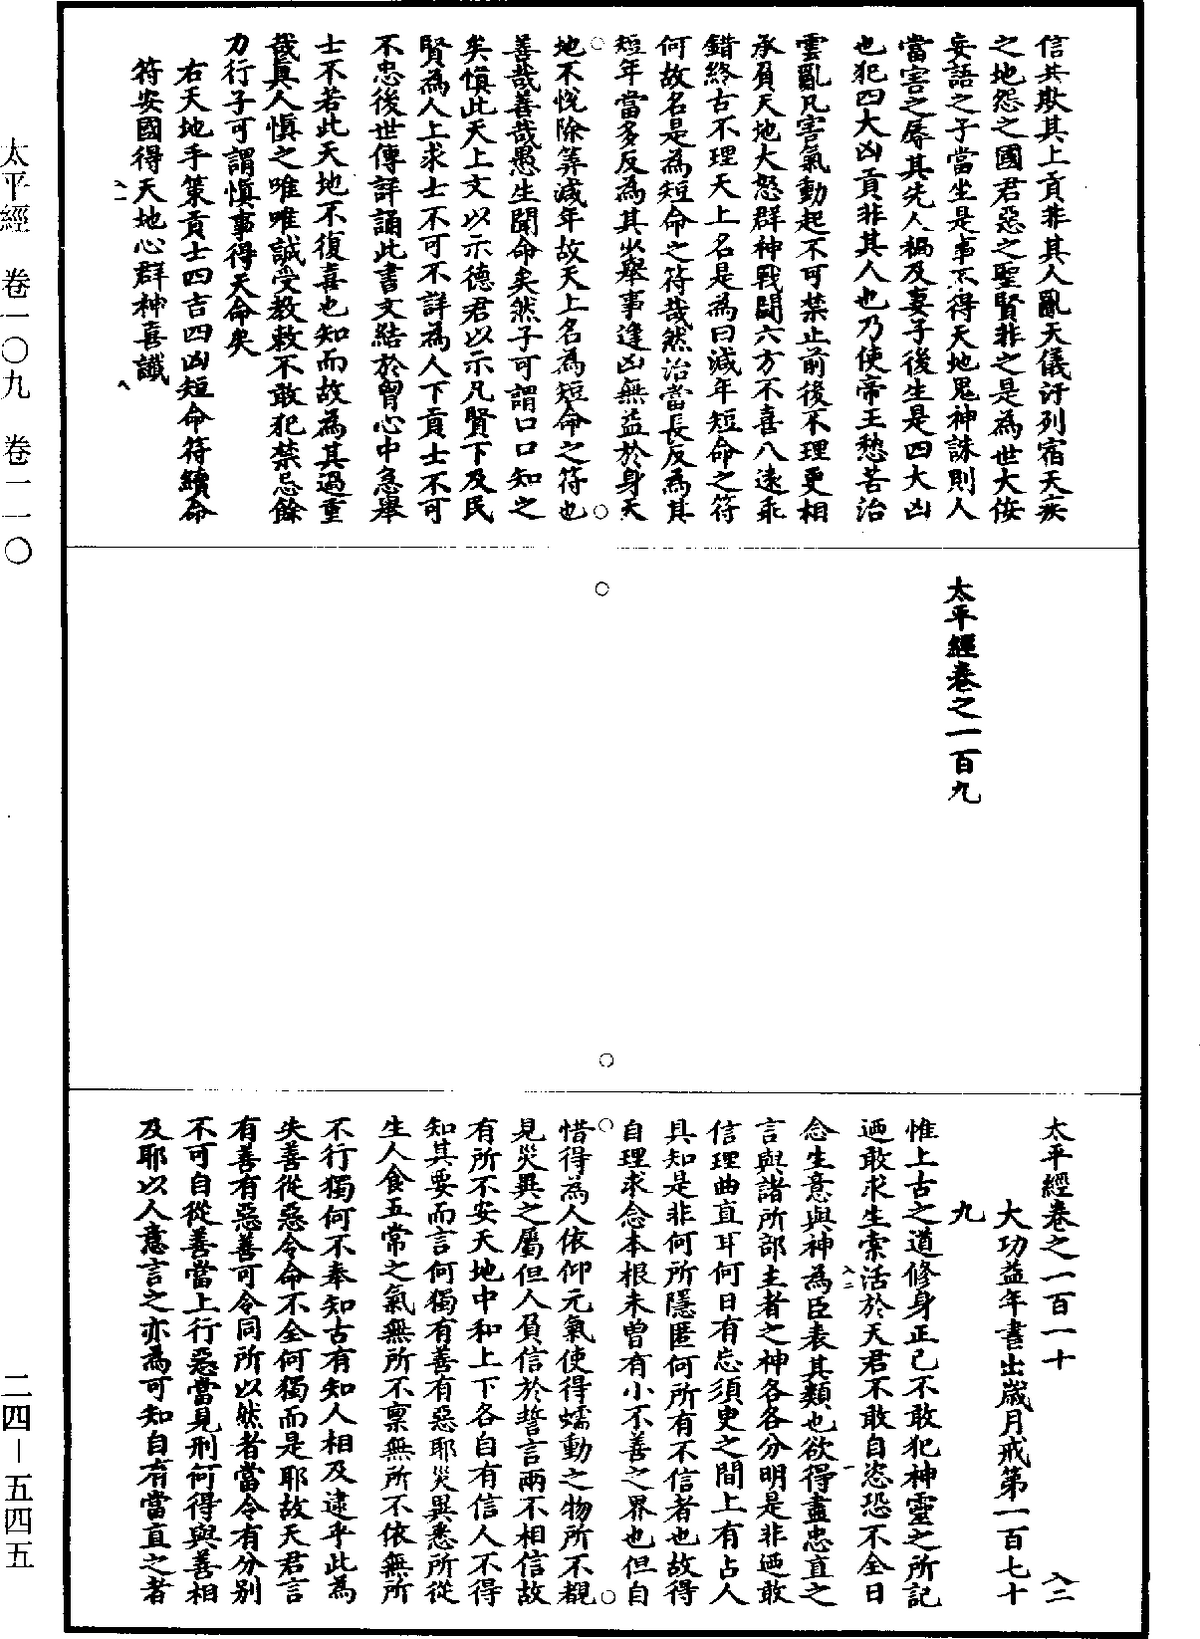 太平經　卷一〇九　卷一一〇
二四－五四五
信共欺其上貢非其人亂天儀汙列宿天疾
之地怨之國君惡之聖賢非之是為世大佞
妄語之子當坐是事不得天地鬼神誅則人
當害之辱其先人禍及妻子後生是四大凶
也犯四大凶貢非其人也乃使帝王愁苦治
雲亂凡害氣動起不可禁止前後不理更相
承負天地大怒群神戰鬭六方不喜八遠乖
錯終古不理天上名是為曰減年短命之符
何故名是為短命之符哉然治當長反為其
短年當多反為其少舉事逢凶無益於身天
地不悅除筭減年故天上名為短命之符也
善哉善哉愚生聞命矣然子可謂口口知之
矣慎此天上文以示德君以示凡賢下及民
賢為人上求士不可不詳為人下貢士不可
不忠後世傳詳誦此書文結於胷心中急舉
士不若此天地不復喜也知而故為其過重
哉真人慎之唯唯誠受教敕不敢犯禁忌餘
力行子可謂慎事得天命矣
右天地手策貢士四吉四凶短命符續命
符安國得天地心群神喜讖
太平經卷之一百九
太平經卷之一百一十　入二
大功益年書出歲月戒第一百七十
九
惟上古之道修身正已不敢犯神靈之所記
迺敢求生索活於天君不敢自恣恐不全日
念生意與神為臣表其類也欲得盡忠直之
言與諸所部主者之神各各分明是非迺敢
信理曲直耳何日有忘須臾之間上有占人
具知是非何所隱匿何所有不信者也故得
自理求念本根未曾有小不善之界也但自
惜得為人依仰元氣使得蠕動之物所不覩
見災異之屬但人負信於誓言兩不相信故
有所不安天地中和上下各自有信人不得
知其要而言何獨有善有惡耶災異悉所從
生人食五常之氣無所不禀無所不依無所
不行獨何不奉知古有知人相及逮乎此為
失善從惡令命不全何獨而是耶故天君言
有善有惡善可令同所以然者當令有分別
不可自從善當上行惡當見刑何得與善相
及耶以人意言之亦為可知自有當直之者